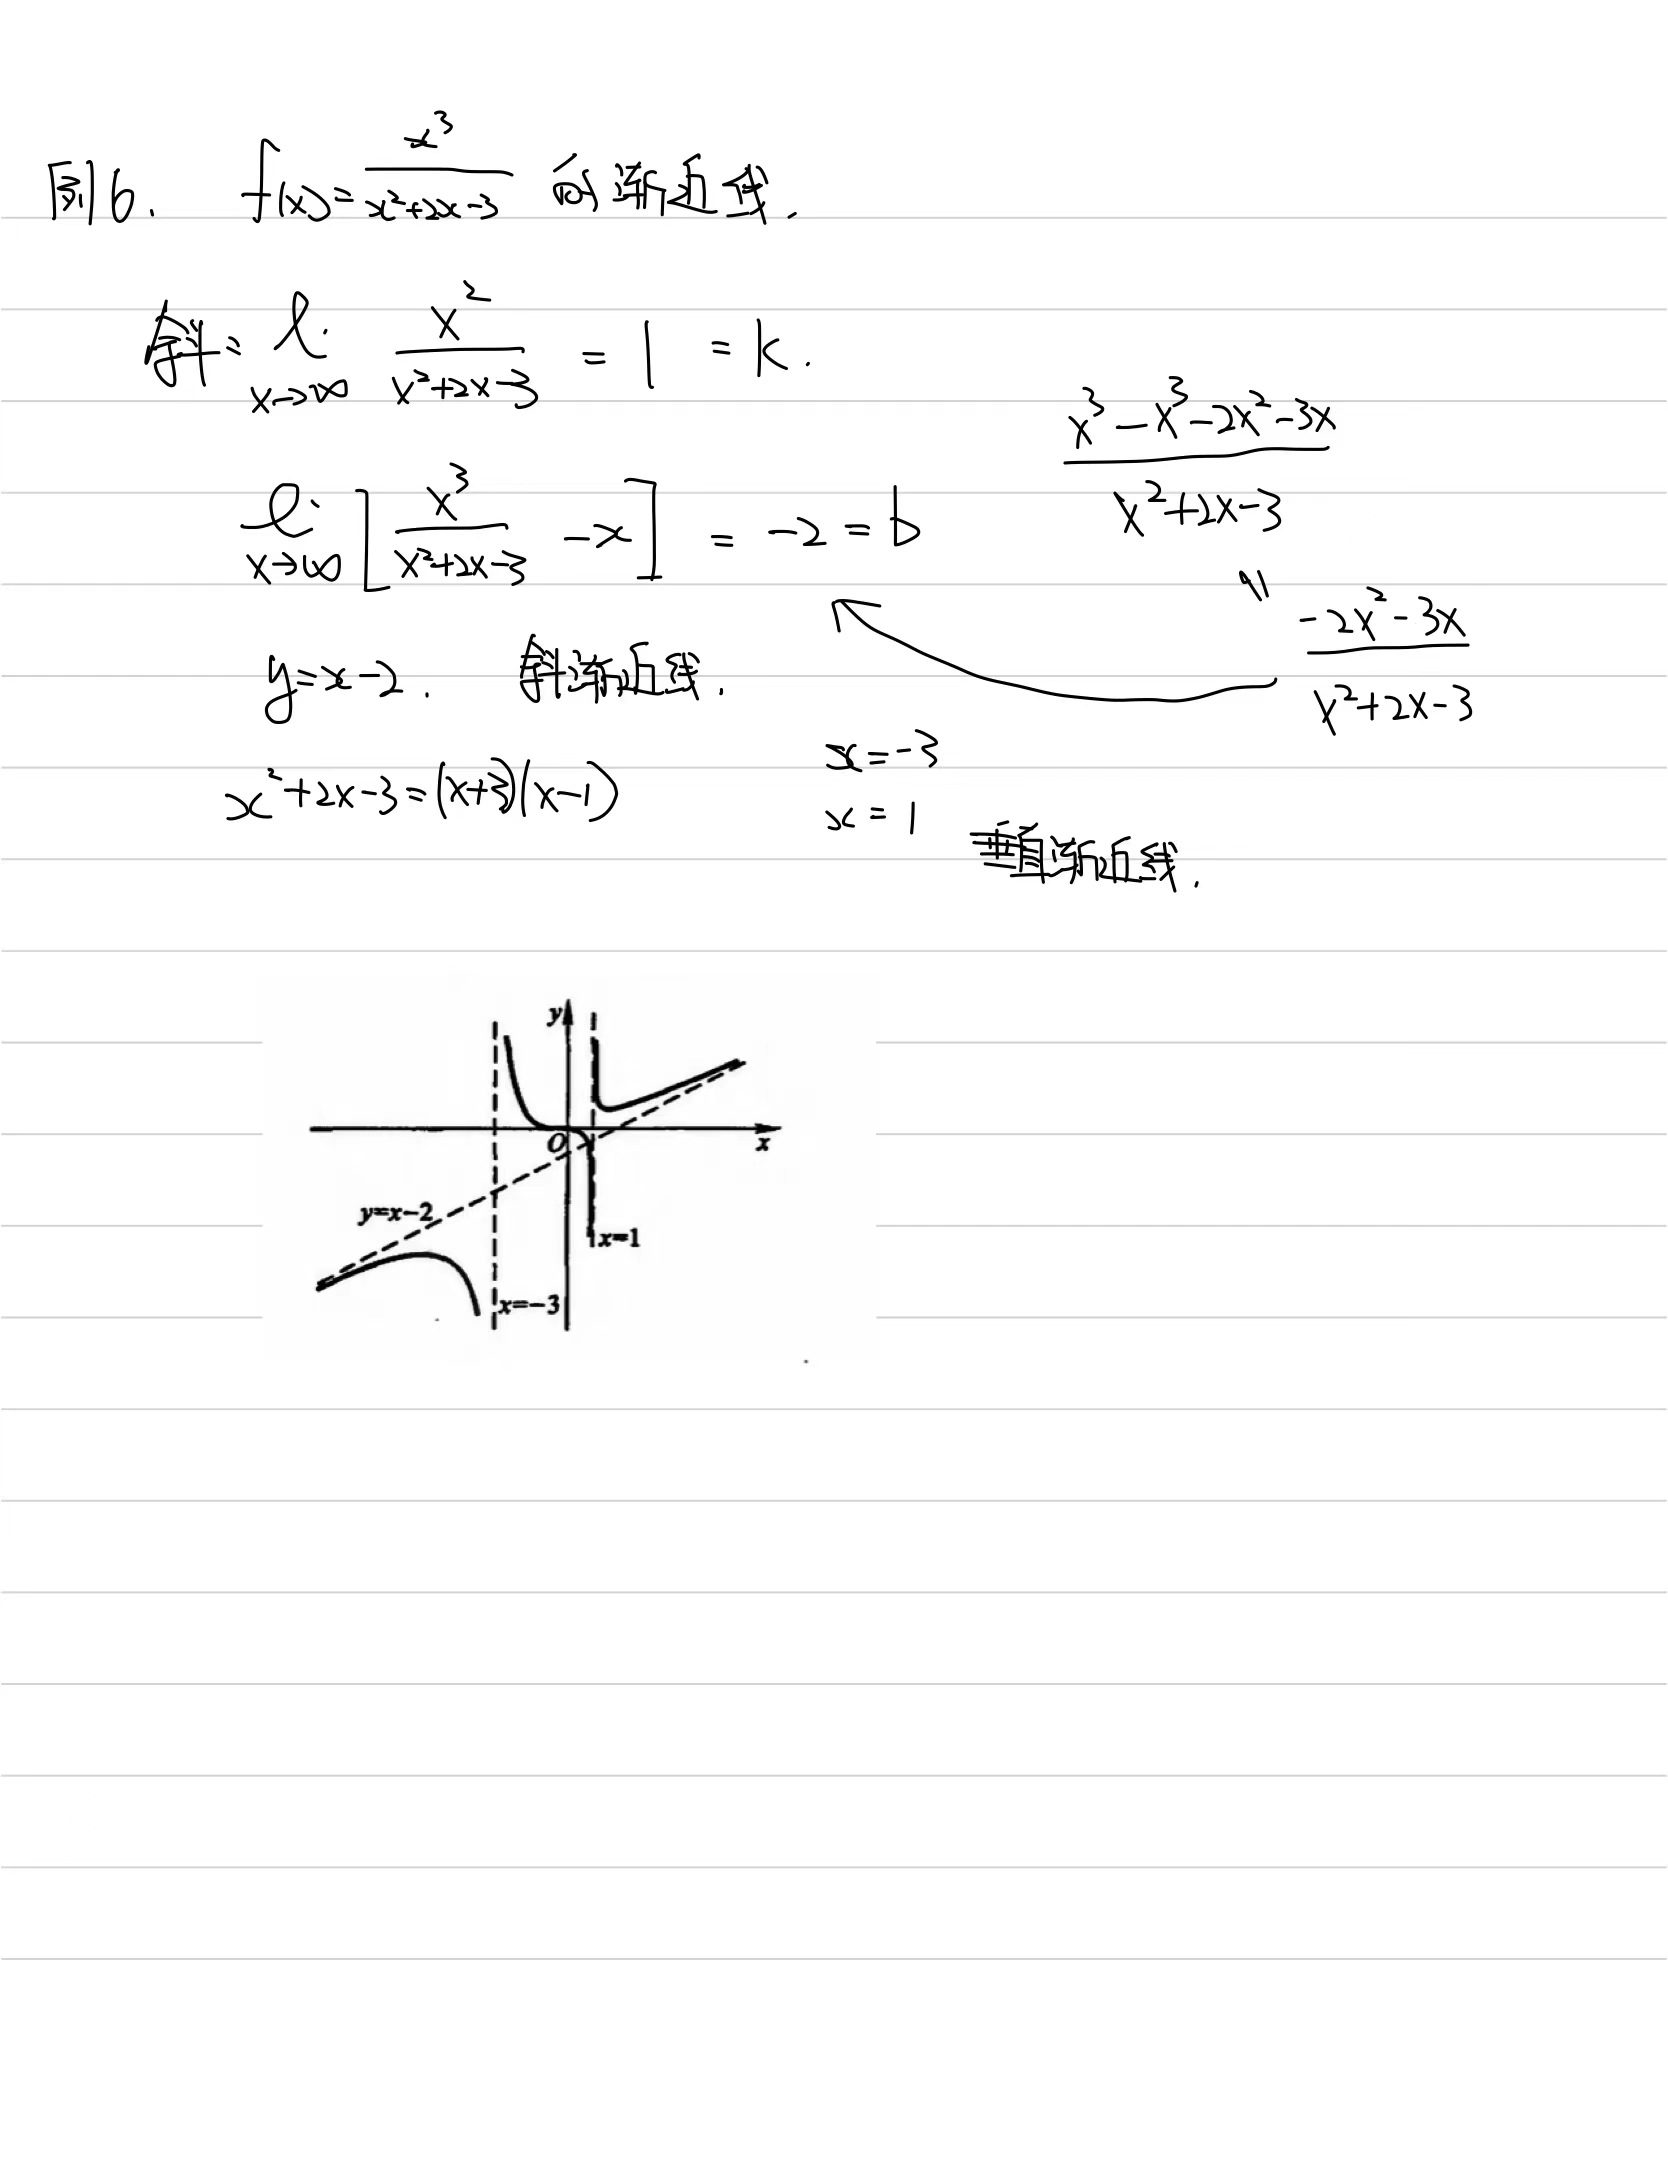 例6. f(x)=x³/(x²+2x-3) 的渐近线.
斜: li x→∞ x²/(x²+2x-3) = 1 = k.
(x³-x³-2x²-3x)/(x²+2x-3)
li x→∞ [x³/(x²+2x-3) -x] = -2 = b
" (-2x²-3x)/(x²+2x-3)
y=x-2. 斜渐近线.
x²+2x-3=(x+3)(x-1)
x=-3
x=1
垂直渐近线.
y
O
x
y=x-2
x=1
x=-3